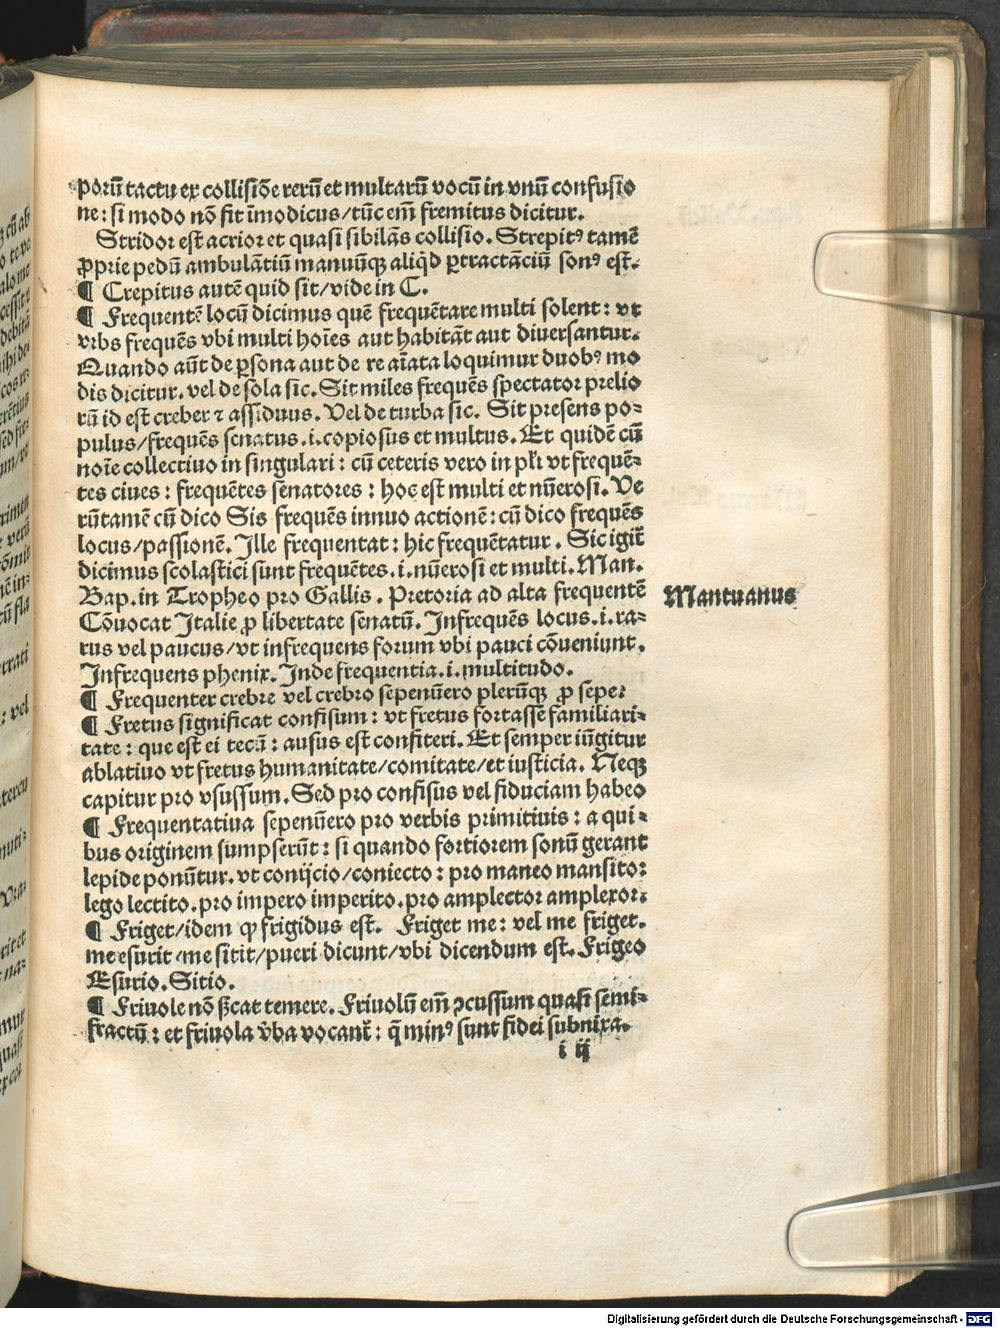 porū tactu ex collisiōe rerū et multarū vocū in vnū confusio
ne: si modo nō sit īmodicus/tūc em̄ fremitus dicitur.
Stridor est acrior et quasi sibilās collisio. Strepitꝰ tamē
ꝓprie pedū ambulātiū manuūqꝫ aliq̇d ꝑtractāciū sonꝰ est.
¶ Crepitus autē quid sit/vide in C.
¶ Frequentē locū dicimus quē frequētare multi solent: vt
vrbs frequēs vbi multi hoīes aut habitāt aut diuersantur.
Quando aūt de ꝑsona aut de re aīata loquimur duobꝰ mo
dis dicitur. vel de sola sic. Sit miles frequēs spectator prelio
rū id est creber ⁊ assiduus. Vel de turba sic. Sit presens po⸗
pulus/frequēs senatus .i. copiosus et multus. Et quidē cū
noīe collectiuo in singulari: cū ceteris vero in pl̄i vt frequē⸗
tes ciues: frequētes senatores: hoc est multi et nūerosi. Ve
rūtamē cū dico Sis frequēs innuo actionē: cū dico frequēs
locus/passionē. Ille frequentat: hic frequētatur. Sic igit̄
dicimus scolastici sunt frequētes .i. nūerosi et multi. Man.
Bap. in Tropheo pro Gallis. Pretoria ad alta frequentē
Mantuanus
Cōuocat Italie ꝓ libertate senatū. Infrequēs locus .i. ra⸗
rus vel paucus/vt infrequens forum vbi pauci cōueniunt.
Infrequens phenix. Inde frequentia .i. multitudo.
¶ Frequenter crebre vel crebro sepenūero plerūqꝫ ꝓ sepe:
¶ Fretus significat confisum: vt fretus fortasse familiari⸗
tate: que est ei tecū: ausus est confiteri. Et semper iūgitur
ablatiuo vt fretus humanitate/comitate/et iusticia. Neqꝫ
capitur pro vsussum. Sed pro confisus vel fiduciam habeo
¶ Frequentatiua sepenūero pro verbis primitiuis: a qui⸗
bus originem sumpserūt: si quando fortiorem sonū gerant
lepide ponūtur. vt conijcio/coniecto: pro maneo mansito:
lego lectito. pro impero imperito. pro amplector amplexor.
¶ Friget/idem ꝙ frigidus est. Friget me: vel me friget.
me esurit/me sitit/pueri dicunt/vbi dicendum est. Frigeo
Esurio. Sitio.
¶ Friuole nō ßcat temere. Friuolū em̄ ꝯcussum quasi semi⸗
fractū: et friuola v̄ba vocant̄: q̄ minꝰ sunt fidei subnixa.
i ij
Digitalisierung gefördert durch die Deutsche Forschungsgemeinschaft - DFG